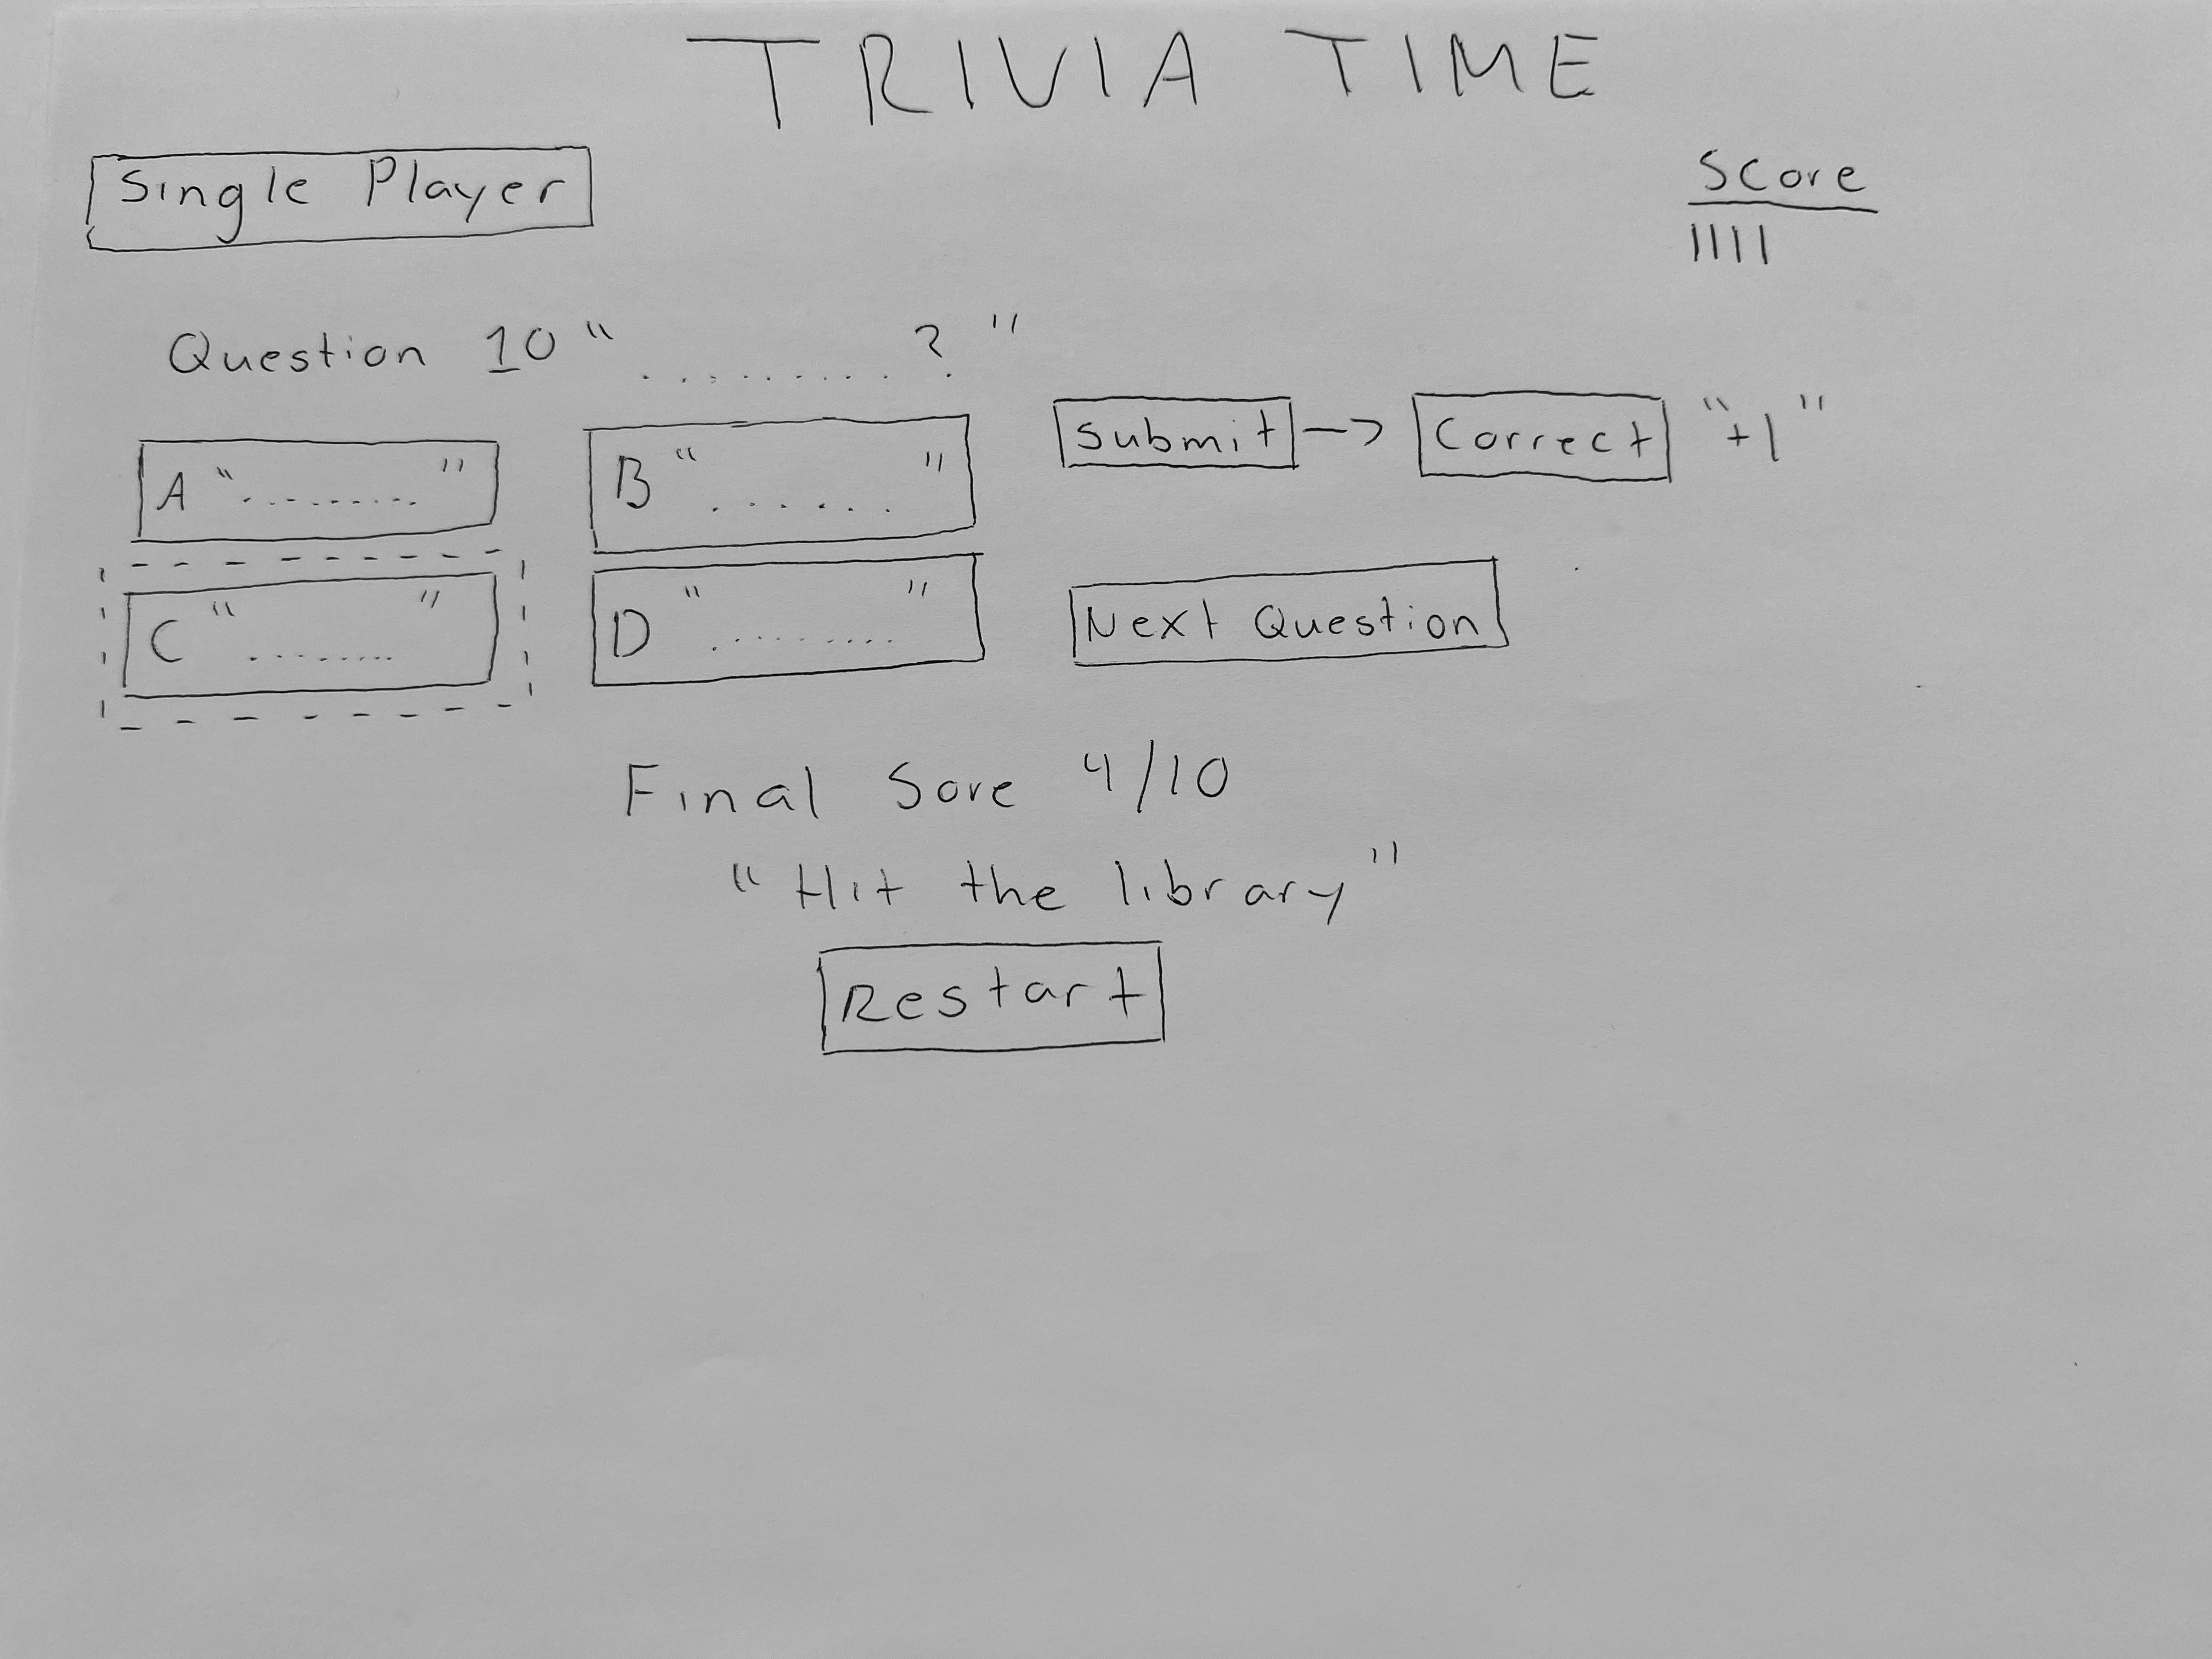 TRIVIA TIME
Single Player
Score
||||
Question 10 " ......... ? "
A " ......... "
B " ...... "
Submit -> Correct "+1"
C " ........ "
D " ......... "
Next Question
Final Sore 4/10
"Hit the library"
Restart